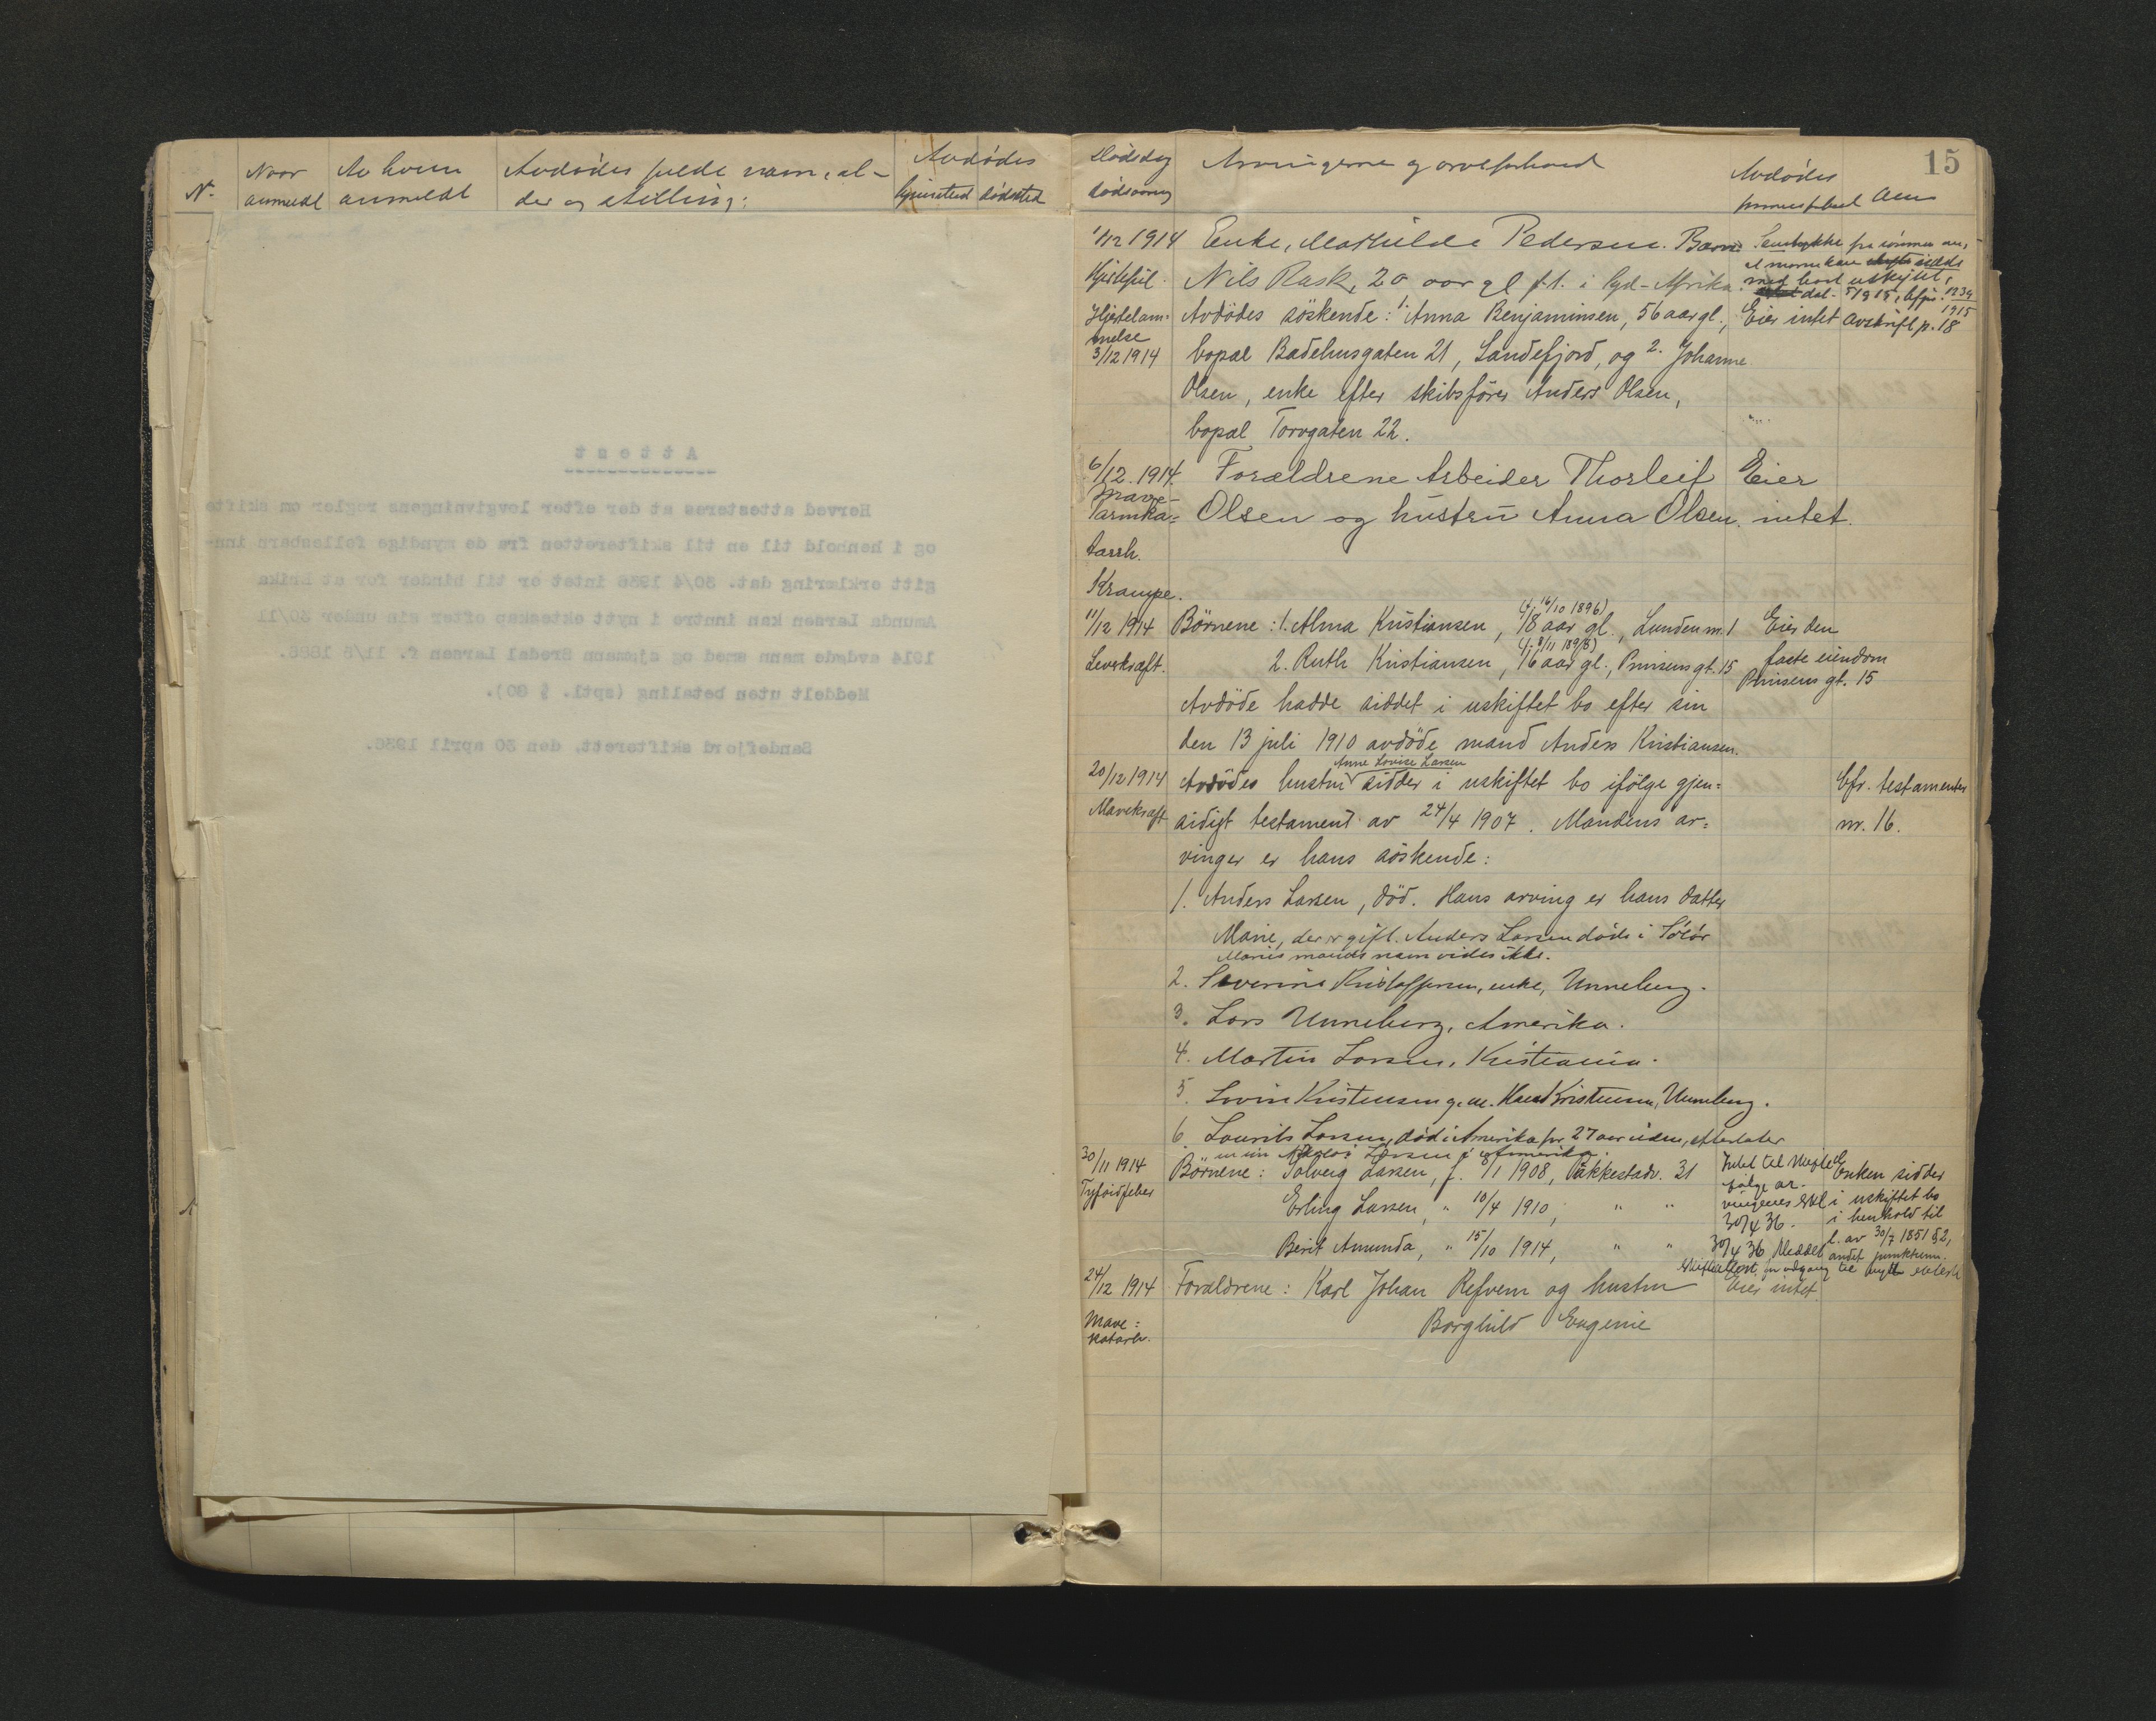 N.
Naar
anmeldt
Av hvem
anmeldt
Avdødes fulde navn, al-
der og stilling:
Avdødes
hjemsted dødssted
Attest
Herved attesteres at der efter lovgivningens regler om skifte
og i henhold til en til skifteretten fra de myndige fellesbarn inn-
gitt erklæring dat. 30/4 1936 intet er til hinder for at Enke
Amunda Larsen kan inntre i nytt ekteskap efter sin under 30/11
1914 avdøde mann smed og sjømann Bredal Larsen f. 11/6 1886.
Meddelt uten betaling (sptl. § 80).
Sandefjord skifterett, den 30 april 1936.
15
Dødsdag
dødsaarsag
Arvingerne og arveforhold
Avdødes
formuesforhold Anm
1/12 1914 Enke, Mathilde Pedersen. Barn:
Hjertefeil. Nils Rask, 20 aar gl p.t. i Syd-Afrika.
Samtykke fra sønnen
uskiftet,
dat. 5/1915,
1915
Avskrift p. 18
Hjertelam-
melse
3/12 1914
Avdødes söskende: 1. Anna Benjaminsen, 56 aar gl., Eier intet
bopæl Badehusgaten 21, Sandefjord, og 2. Johanne
Olsen, enke efter skibsförer Anders Olsen,
bopæl Torvgaten 22.
6/12 1914. Forældrene Arbeider Thorleif Eier
Mave-
Tarmka- Olsen og hustru Anna Olsen. intet.
tarrh.
Krampe.
(f. 16/10 1896)
11/12 1914 Börnene: 1. Alma Kristiansen, 18 aar gl., Lunden m. 1 Eier den
(f. 8/11 1898)
Leverkræft. 2. Ruth Kristiansen, 16 aar gl., Prinsensgt. 15 faste eiendom
Prinsens gt. 15
Avdöde hadde siddet i uskiftet bo efter sin
den 13 juli 1910 avdöde mand Anders Kristiansen.
Anne Lovise Larsen
20/12 1914 Avdödes hustru sidder i uskiftet bo ifölge gjen- Cfr. testamenter
Mavekræft sidigt testament av 24/4 1907. Mandens ar- nr. 16.
vinger er hans söskende:
1. Anders Larsen, död. Hans arving er hans datter
Marie, der er gift. Anders Larsen døde i Solør
Maries mands navn vides ikke.
2. Severine Kristoffersen, enke, Unneberg.
3. Lars Unneberg, Amerika.
4. Martin Larsen, Kristiania.
5. Lovise Kristensen g.m. Hans Kristensen, Unneberg.
6. Laurits Larsen, död i Amerika for 27 aar siden, efterlater
Larsen i Amerika.
30/11 1914 Börnene: Solveig Larsen, f. 8/1 1908, Bakkestadv. 31
Tyfoidfeber Erling Larsen, " 10/4 1910, " "
Berit Amunda, " 15/10 1914, " "
Intet til skifte
ifølge ar-
vingenes erkl
30/4 36.
Enken sidder
i uskiftet bo
i henhold til
l. av 30/7 1851 § 2,
andet punktum.
30/4 36 Meddelt
skifteattest for adgang til nytt ektesk
24/12 1914 Forældrene: Karl Johan Refvem og hustru Eier intet.
Mave-
katarh. Borghild Eugenie